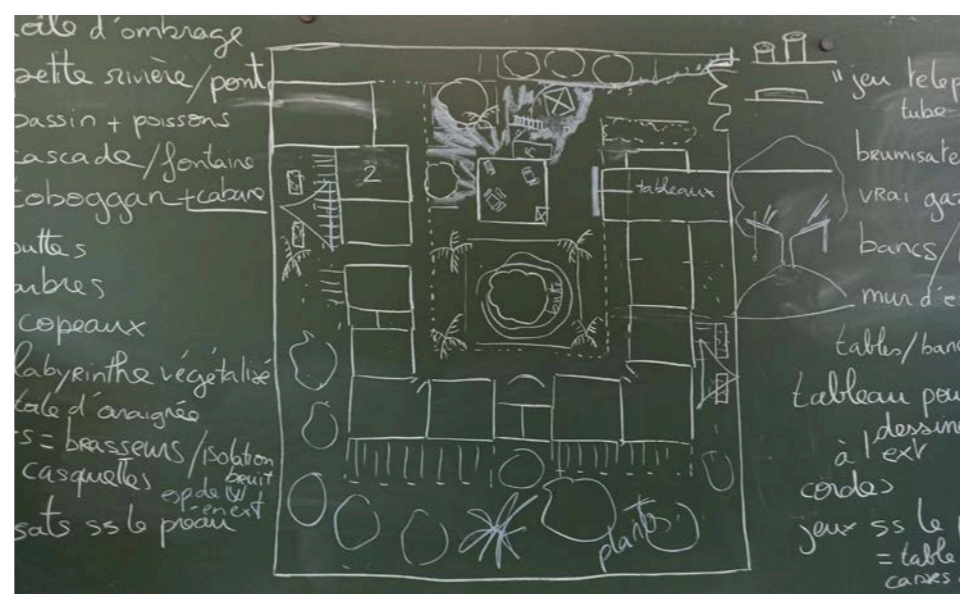 d'ombrage
petite rivière/pont
bassin + poissons
cascade/fontaine
toboggan + cabane
buttes
arbres
copeaux
labyrinthe végétalisé
toile d'araignée
= brasseurs/isolation
bruit
casquettes
esp de W
en ext
ss le préau
2
tableaux
butte
plantes
"jeu
tube
vrai
bancs/
mur
tables/
tableau
dessine
à l'ext
cordes
jeux ss le
= table